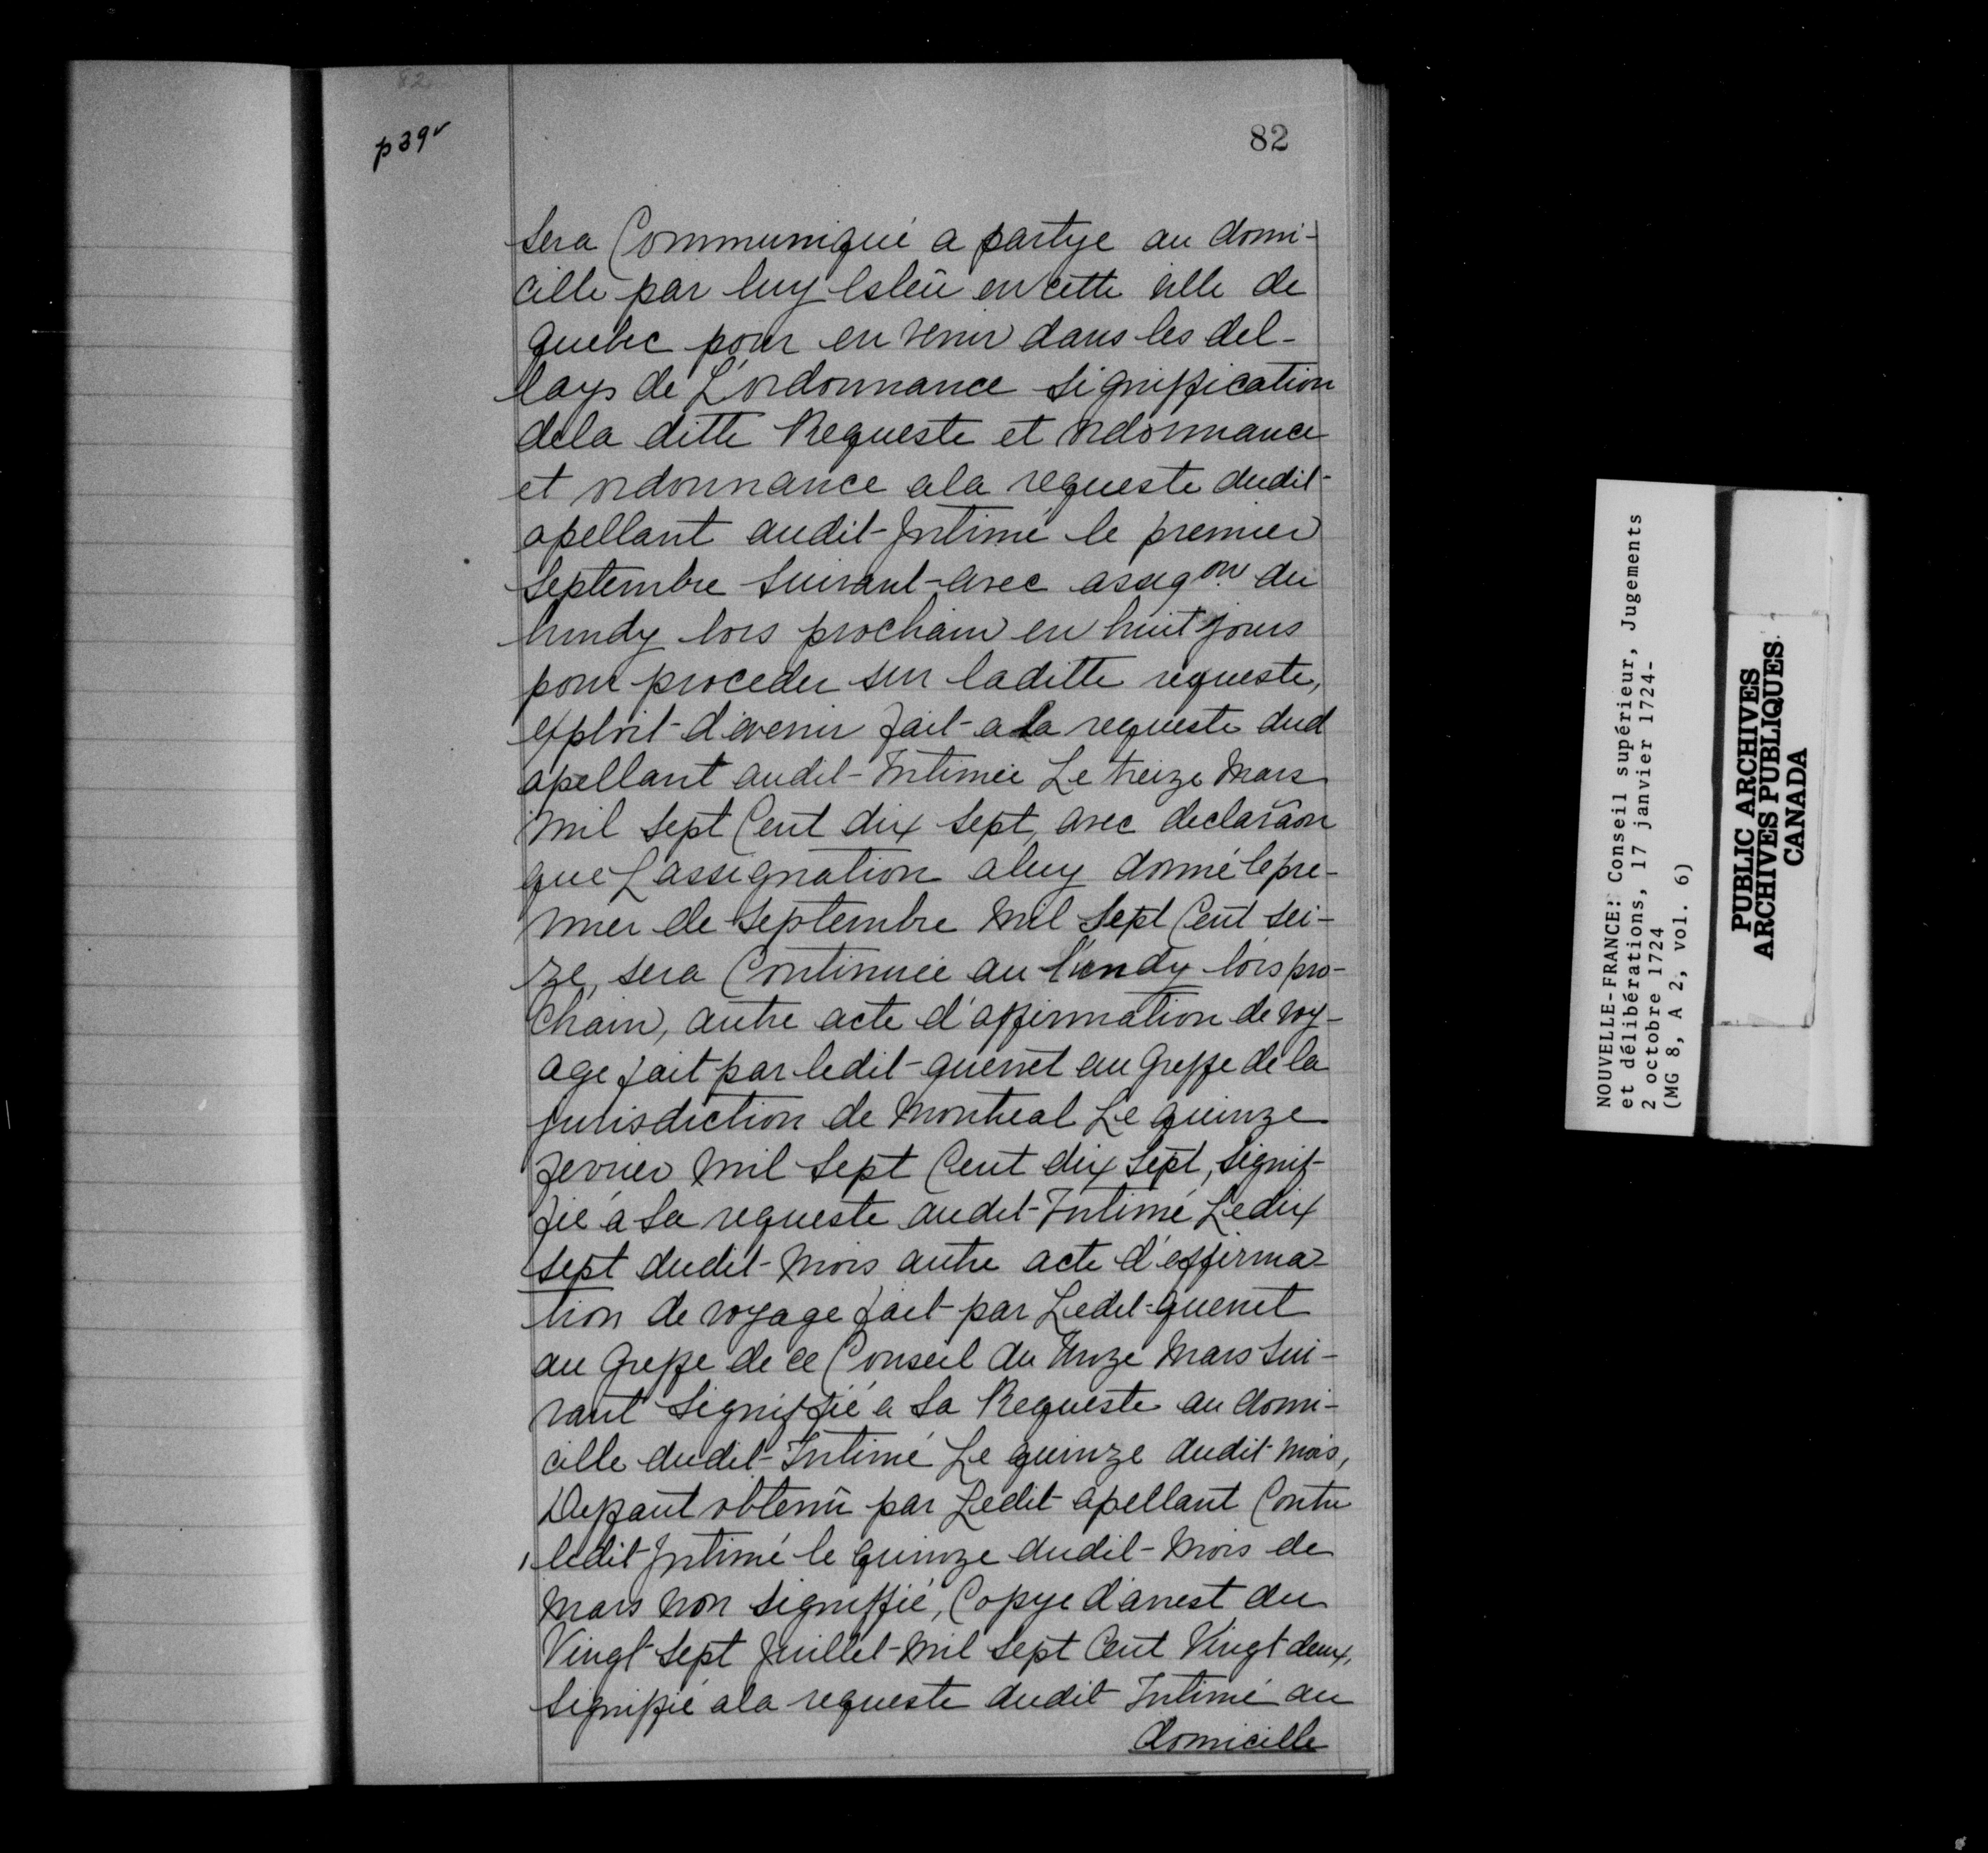 82
p 39v
82
sera Communiqué a partye au domi-
cille par luy esleû en cette ville de
quebec pour en venir dans les del-
lays de L'ordonnance signiffication
dela ditte Requeste et ordonnance
et ordonnance ala requeste dudit
apellant audit Intimé le premier
septembre suivant avec assigon. du
lundy lors prochain en huit jours
pour proceder sur laditte requeste,
exploit d'avenir fait a la requeste dud
apellant audit Intimée Le treize Mars
Mil sept Cent dix sept, avec declaraõn
que L'assignation aluy donné le pre-
mier de septembre Mil sept Cent sei-
ze, sera Continuée au lundy lors pro-
Chain, autre acte d'affirmation de voy-
age fait par ledit quenet au Greffe de la
jurisdiction de Montreal Le quinze
fevrier Mil sept Cent dix sept, signif-
fié a sa requeste audit Intimé Le dix
sept dudit Mois autre acte d'affirma-
tion de voyage fait par Ledit quenet
au Greffe de ce Conseil du Unze Mars sui-
vant signiffié a sa Requeste au domi-
cille dudit Intimé Le quinze dudit mois,
Deffaut obtenû par Ledit apellant Contre
ledit Intimé le quinze dudit Mois de
Mars Non signiffié, Copye d'arrest du
Vingt sept Juillet Mil sept Cent Vingt deux,
signiffié ala requeste dudit Intimé au
domicille
NOUVELLE-FRANCE: Conseil supérieur, Jugements
et délibérations, 17 janvier 1724-
2 octobre 1724
(MG 8, A 2, vol. 6)
PUBLIC ARCHIVES
ARCHIVES PUBLIQUES
CANADA